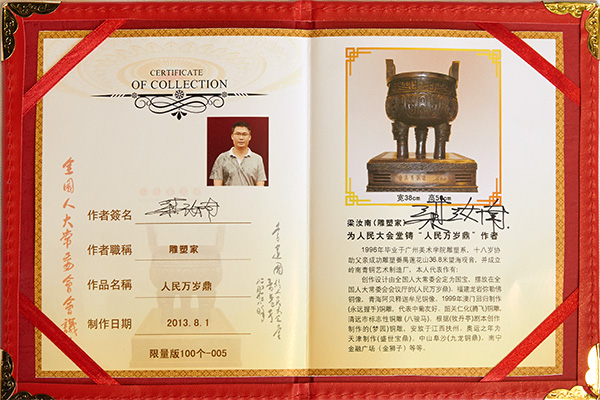 CERTIFICATE
OF COLLECTION
全国人大常委会会议
作者簽名 梁汝南
作者職稱 雕塑家
作品名稱 人民万岁鼎
制作日期 2013.8.1
限量版100个-005
宽38cm 高5
梁汝南
梁汝南(雕塑家)
为人民大会堂铸“人民万岁鼎”作者
1996年毕业于广州美术学院雕塑系,十八岁协
助父亲成功雕塑番禺莲花山36.8米望海观音,并成立
岭南青铜艺术制造厂,本人代表作有:
创作设计由全国人大常委会定为国宝,摆放在全
国人大常委会会议厅的(人民万岁鼎)、福建龙岩弥勒佛
铜像,青海阿贝释迦牟尼铜像、1999年澳门回归制作
(永远握手)铜雕,代表中葡友好,韶关仁化(腾飞)铜雕,
清远市标志性铜雕(八骏马),根据(牧丹亭)剧本创作
制作的(梦园)铜雕,安放于江西抚州,奥运之年为
天津制作(盛世宝鼎)、中山阜沙(九龙铜鼎)、南宁
金融广场(金狮子)等等。